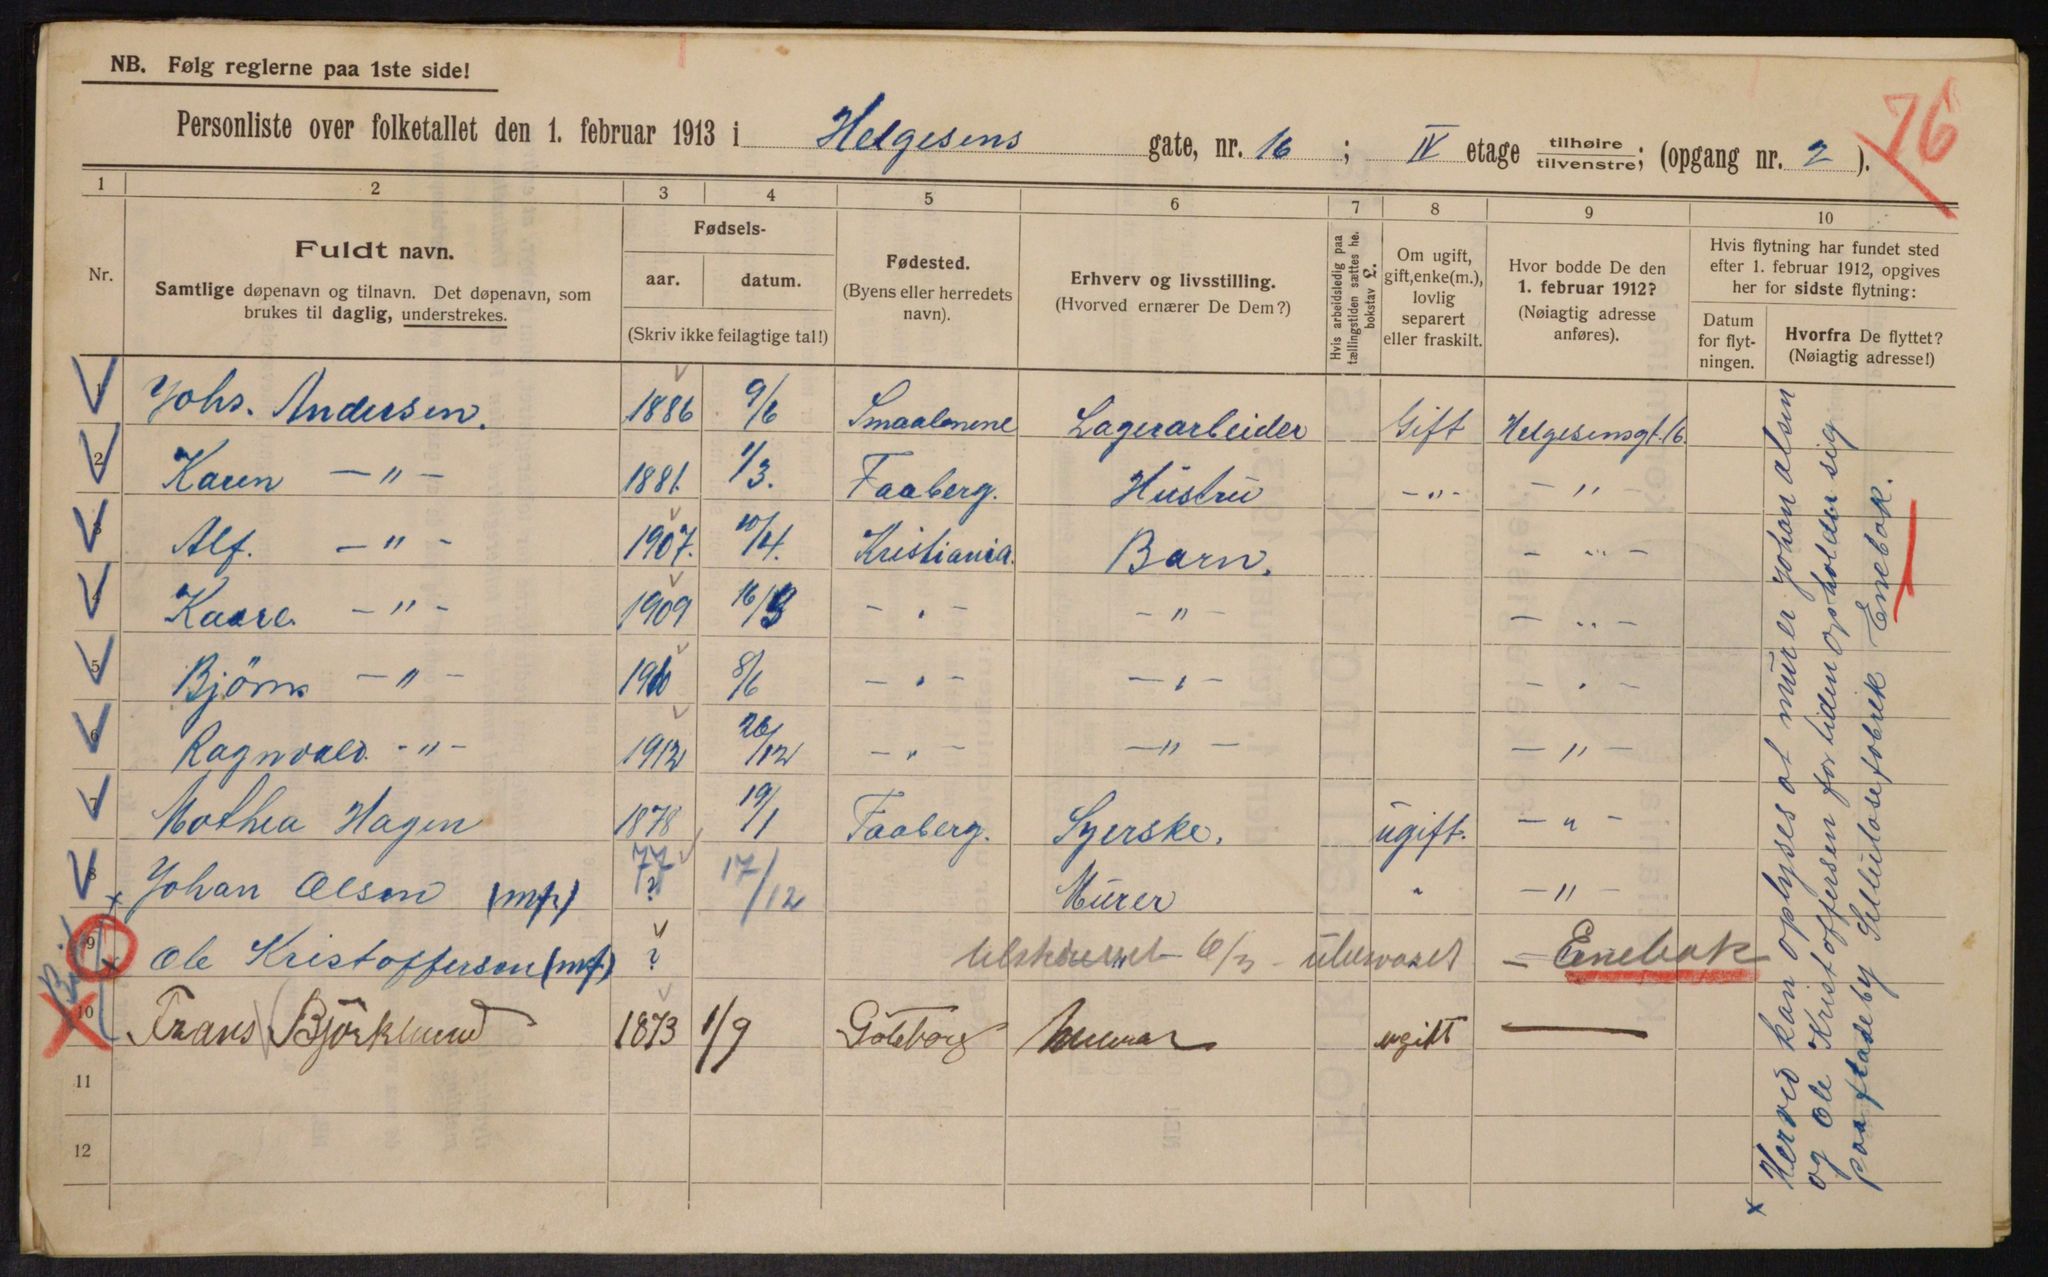 NB. Følg reglerne paa 1ste side!
76
Personliste over folketallet den 1. februar 1913 i Helgesens gate, nr. 16 ; IV etage tilhøire tilvenstre; (opgang nr. 2 ).
1 2 3 4 5 6 7 8 9 10
Nr.
Fuldt navn.
Samtlige døpenavn og tilnavn. Det døpenavn, som
brukes til daglig, understrekes.
Fødsels-
aar. datum.
(Skriv ikke feilagtige tal!)
Fødested.
(Byens eller herredets
navn).
Erhverv og livsstilling.
(Hvorved ernærer De Dem?)
Hvis arbeidsledig paa
tællingstiden sættes he.
bokstav £.
Om ugift,
gift, enke(m.),
lovlig
separert
eller fraskilt.
Hvor bodde De den
1. februar 1912?
(Nøiagtig adresse
anføres).
Hvis flytning har fundet sted
efter 1. februar 1912, opgives
her for sidste flytning:
Datum
for flyt-
ningen.
Hvorfra De flyttet?
(Nøiagtig adresse!)
1 Johs. Andersen. 1886 9/6 Smaalenene Lagerarbeider Gift Helgesensgt. 16.
2 Karen — " — 1881. 1/3. Faaberg. Hustru — " — — " —
3 Alf. — " — 1907. 10/4. Kristiania. Barn. — " —
4 Kaare. — " — 1909 16/9 — " — — " — — " —
5 Bjørn — " — 1910 8/6 — " — — " — — " —
6 Ragnvald. — " — 1912 26/12 — " — — " — — " —
7 Mathea Hagen 1878 19/1 Faaberg. Syerske. ugift. — " —
8 Johan Olsen (mf) 77 ? 17/12 Murer " — " —
9 Ole Kristoffersen (mf) ? " — Enebak
10 Frans Björklund 1873 1/9 Göteborg ugift —
11
12
x Herved kan oplyses at murer Johan Olsen
og Ole Kristoffersen for tiden opholder sig
paa Fladeby Sellulosefabrik Enebak.